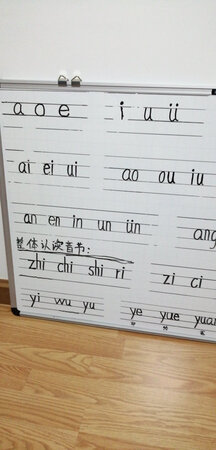 a o e i u ü
ai ei ui ao ou iu
an en in un ün ang
整体认读音节:
zhi chi shi ri zi ci
yi wu yu ye yue yuan